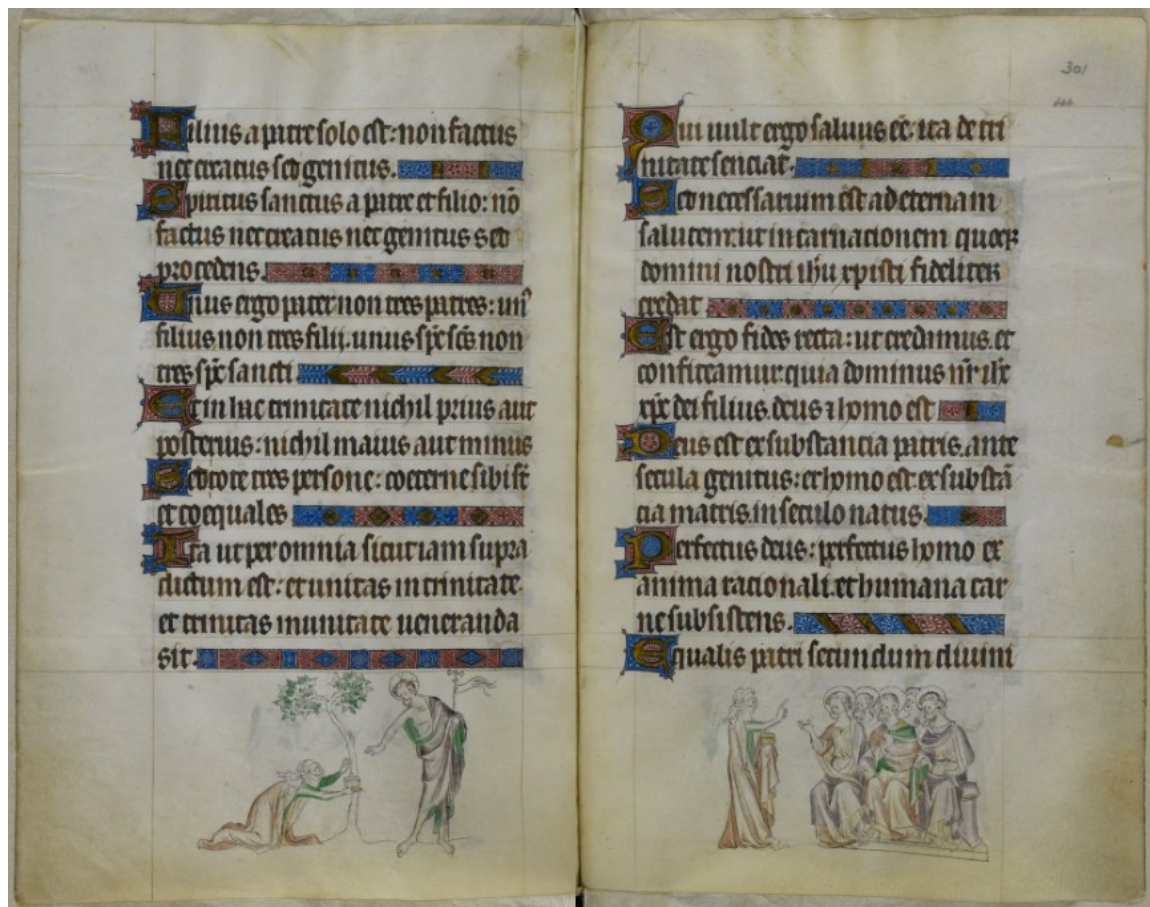 Filius a patre solo est: non factus
nec creatus sed genitus.
Spiritus sanctus a patre et filio: nō
factus nec creatus nec genitus sed
procedens.
Unus ergo pater non tres patres: un᾿
filius non tres filii. unus sp̄c sc̄s non
tres sp̄c sancti
Et in hac trinitate nichil prius aut
posterius: nichil maius aut minus
Sed tote tres persone: coeterne sibi st̄
et coequales
Ita ut per omnia sicut iam supra
dictum est: et unitas in trinitate.
et trinitas in unitate ueneranda
sit.
301
Qui uult ergo saluus eē: ita de tri
nitate senciat.
Sed necessarium est ad eternam
salutem: ut incarnacionem quoqꝫ
domini nostri ihū xpisti fideliter
credat
Est ergo fides recta: ut credamus. et
confiteamur. quia dominus nr̄ ihc̄
xp̄c dei filius. deus ⁊ homo est
Deus est ex substancia patris. ante
secula genitus: et homo est ex substā
cia matris. in seculo natus.
Perfectus deus: perfectus homo ex
anima racionali. et humana car
ne subsistens.
Equalis patri secundum diuini